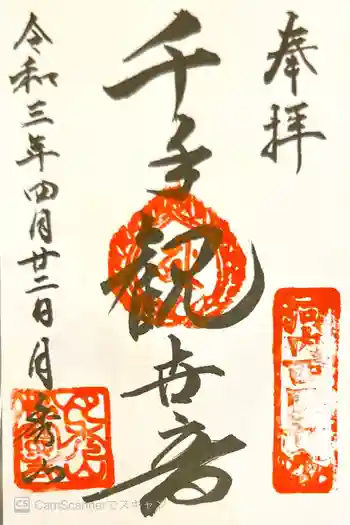 奉拝
千手観世音
令和三年四月廿二日月秀山
CS CamScannerでスキャン